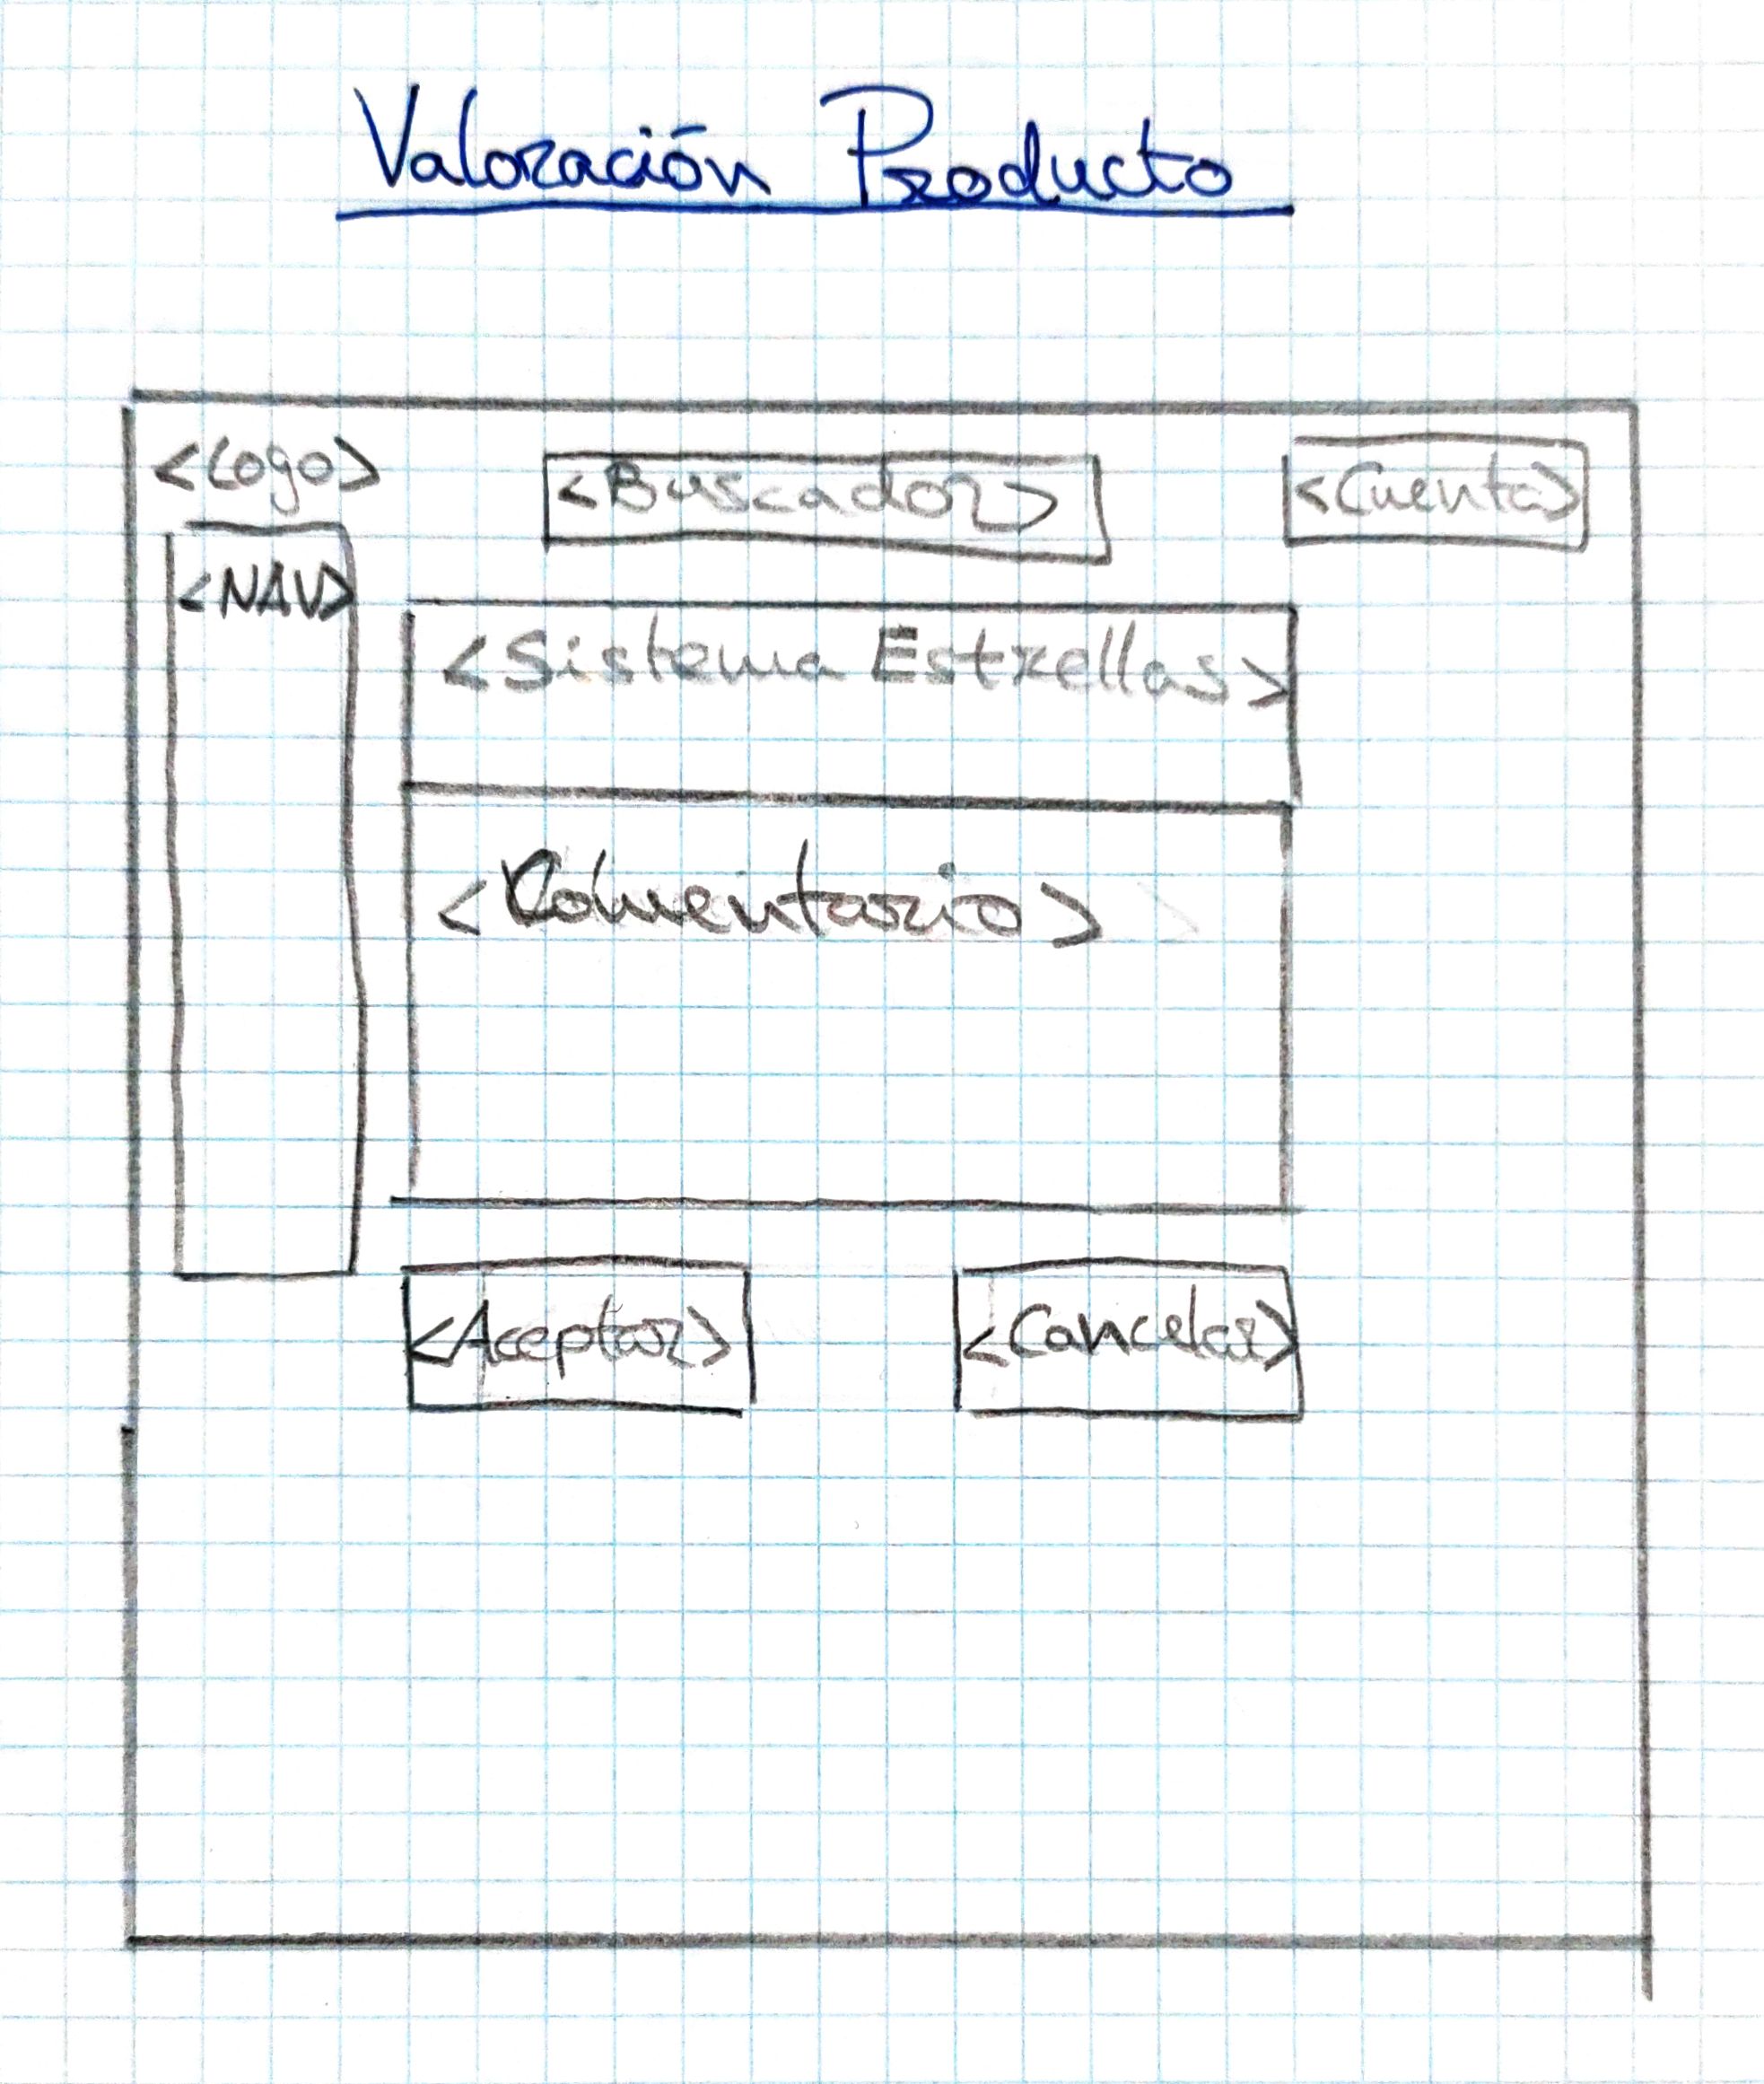 Valoración Producto
<Logo>
<Buscador>
<Cuenta>
<NAV>
<Sistema Estrellas>
<Comentario>
<Aceptar>
<Cancelar>